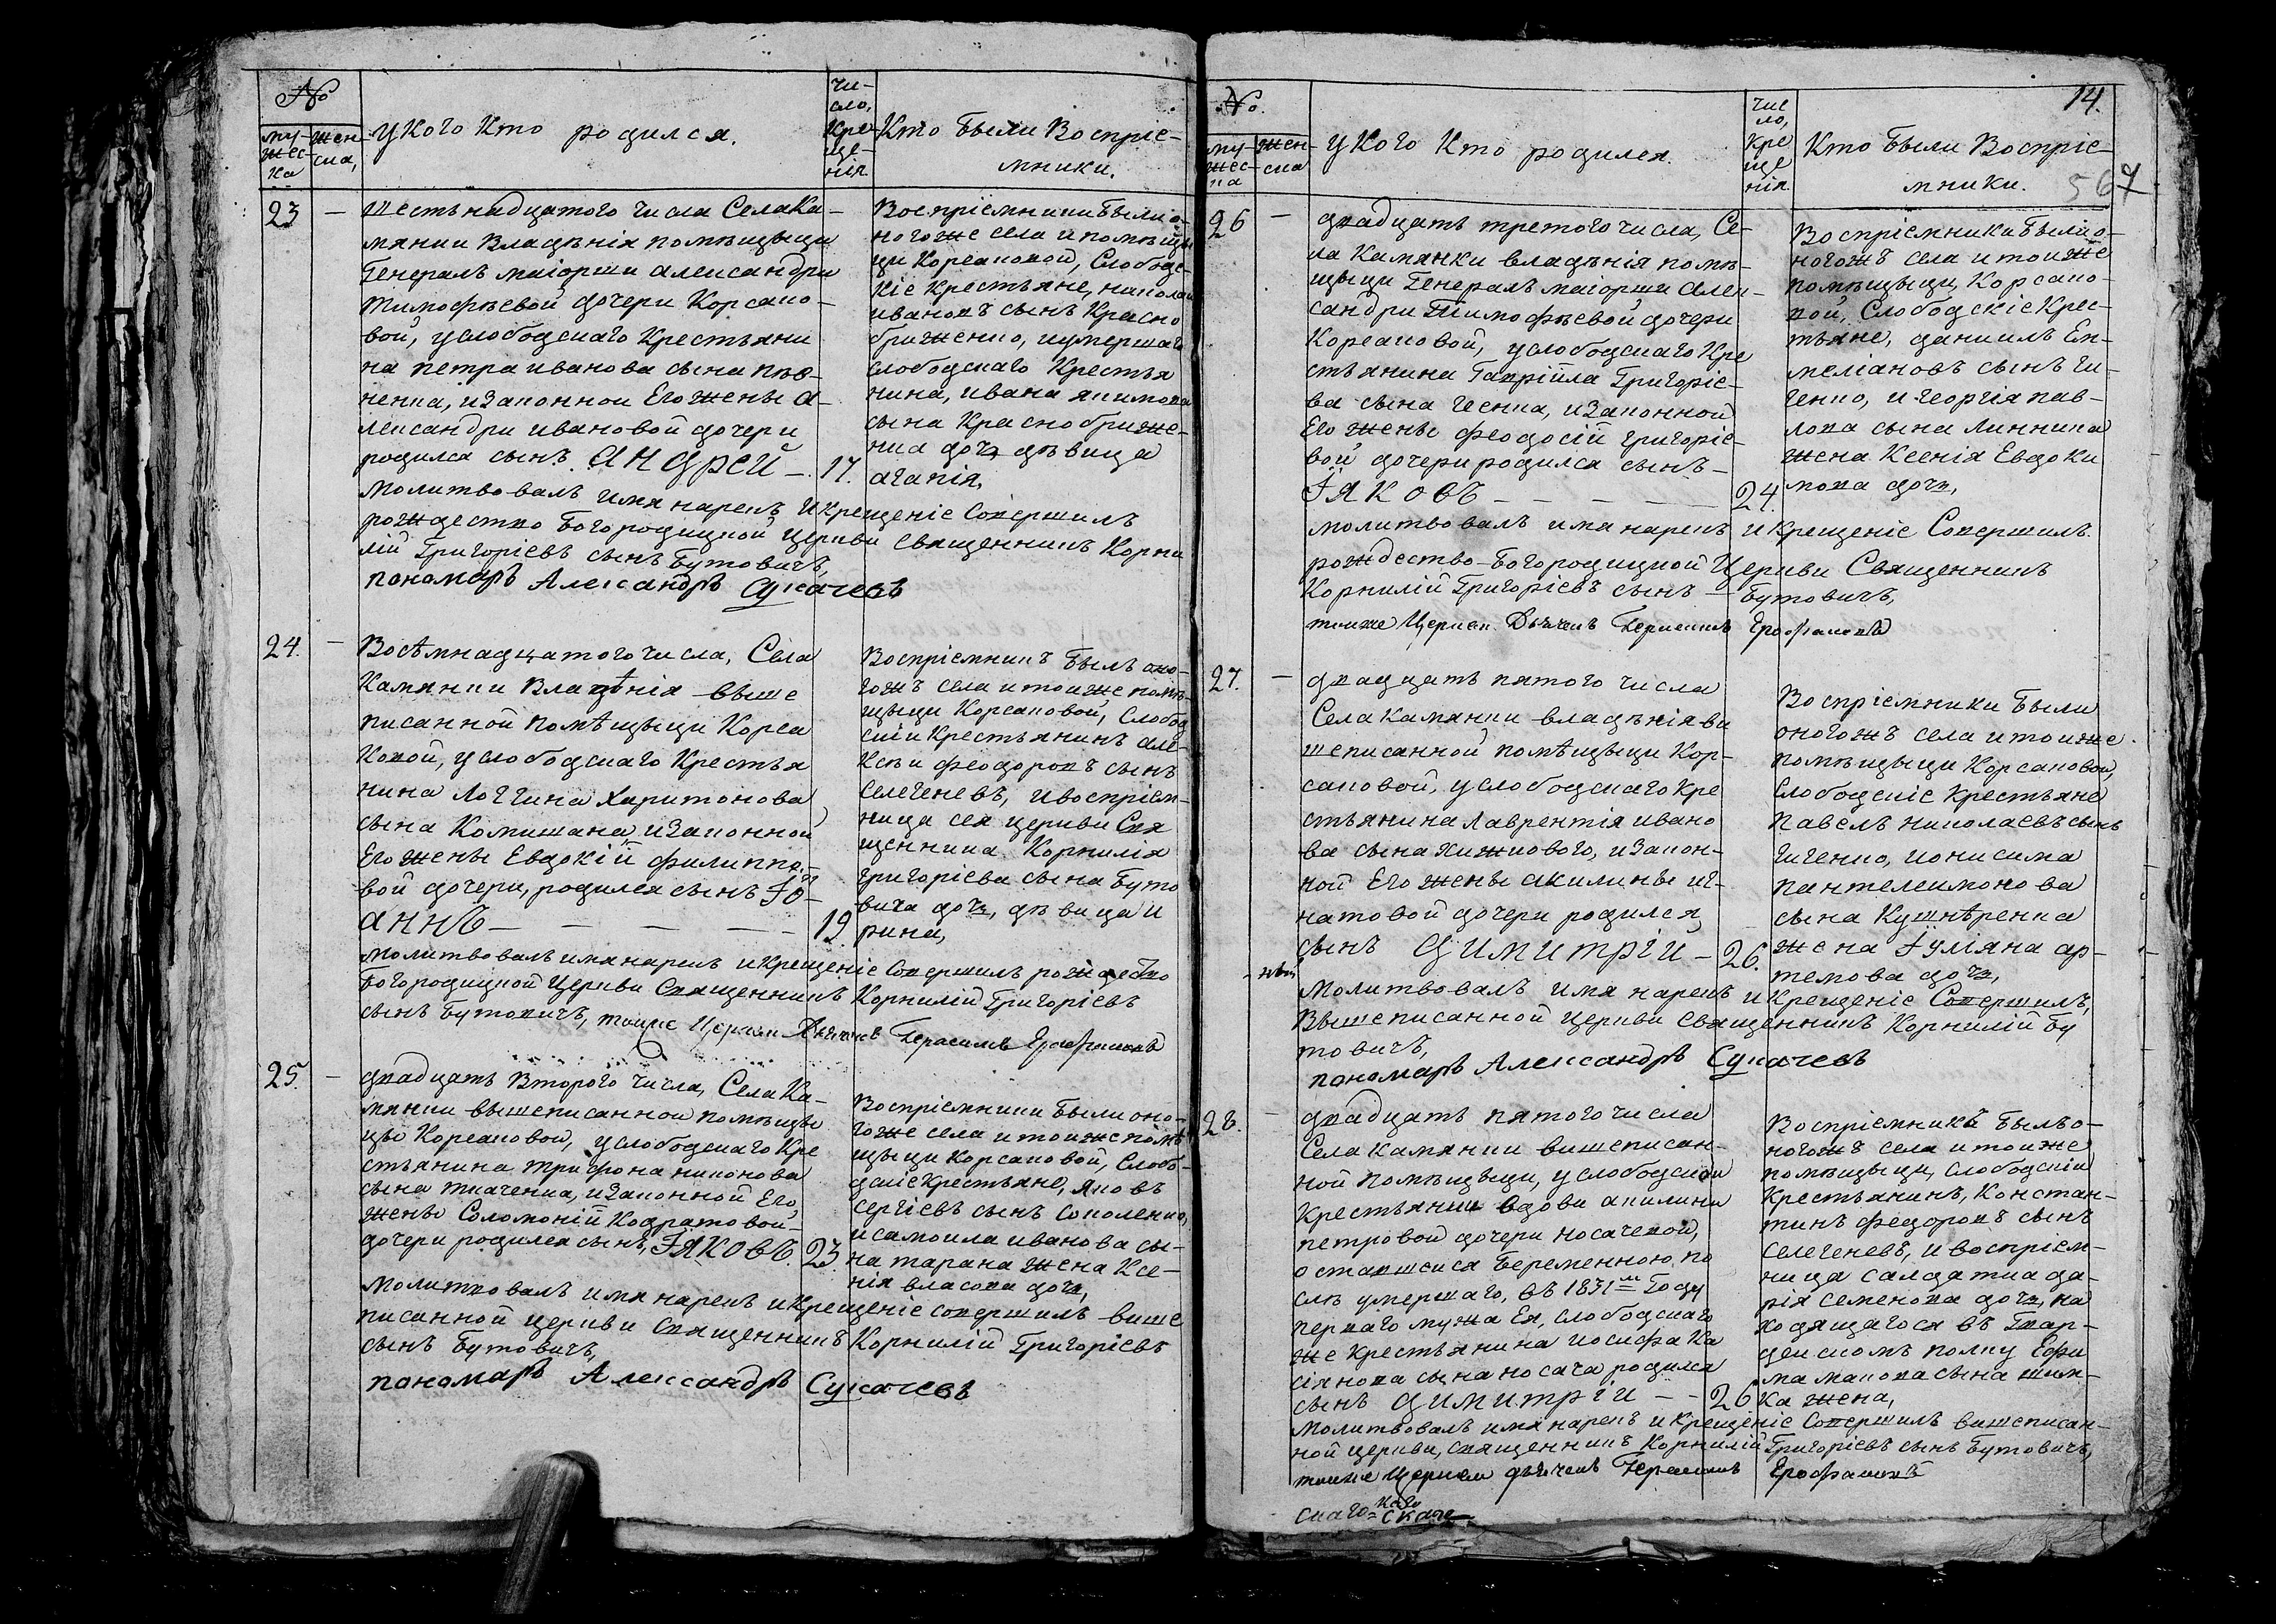 №
му-
жес-
ка
жен-
ска,
у Кого Кто родился.
Чи-
сло,
Кре-
ще-
нія.
Кто были Воспріє-
мники.
23
—
шестьнадцатого числа Села Ка-
мянки Владѣнія помѣщыци
Генералъ маіорши александри
тимофѣевой дочери Корсако-
вой, у слободскаго Крестьяни
на петра иванова сына
ненка, и Законной Его жены а-
лександри ивановой дочери
родился сынъ. андрей —. 17.
Воспріємники были о-
ногоже села и помѣщы
ци Корсаковой, Слободс-
кіе крестьяне, николай
ивановъ сынъ Красно
бриженко, и умершаго
слободскаго Крестья
нина, ивана якимова
сына Краснобриже-
нка дочь дѣвица
агапія,
молитвовалъ имя нарекъ и крещеніе Совершилъ
рождество Богородицкой Церкви Священникъ Корни
лій Григорієвъ сынъ Бутовичъ,
пономарь Александръ Сукачевъ
24.
—
Восѣмнадцатого числа, Села
Камянки Владѣнія выше
писанной помѣщыци Корса
ковой, у слободскаго Крестья
нина Логгина Харитонова
сына Комишана, и Законной
Его жены Евдокій филиппо-
вой дочери, родился сынъ Іо-
аннъ — — — — 19.
Воспріємникъ былъ оно-
гожъ села и тоиже помѣ-
щыци Корсаковой, Слобод
скій Крестьянинъ але-
Ксѣи феодоровъ сынъ
селегеневъ, и воспрієм-
ница сея церкви Свя
щенника Корнилія
григорієва сына Буто
вича дочь, дѣвица И
рина,
молитвовалъ имя нарекъ и Крещеніе Совершилъ рождество
Богородицкой Церкви Священникъ Корнилій Григорієвъ
сынъ Бутовичъ, тоиже Церкви Дьячекъ Герасимъ Ерофаловъ
25.
—
двадцать Второго числа, Села Ка-
мянки вышеписанной помѣщы
цы Корсаковой, у слободскаго Кре
стьянина трифона никонова
сына ткаченка, и Законной Его,
жены Соломоній Кодратовой
дочери родился сынъ, Іаковъ. 23
Воспріємники были оно-
гоже села и тоиже помѣ
щыци Корсаковой, Слобо-
дскіе Крестьяне, яковъ
сергієвъ сынъ Соколенко,
и самоила иванова сы-
на тарана жена Ксе-
нія власова дочь,
молитвовалъ имя нарекъ и Крещеніе совершилъ више
писанной церкви Священникъ Корнилій Григорієвъ
сынъ Бутовичъ,
пономарь Александръ Сукачевъ
14.
№.
му-
жес-
ка
жен-
ска
у Кого Кто родился.
Чис
ло,
Кре
ще
нія.
Кто были Воспріє-
мники.
567
26
—
двадцать третого числа, Се-
ла Камянки владѣнія помѣ-
щыци Генералъ маіорши алек-
сандри Тимофѣевой дочери
Корсаковой, у слободскаго Кре
стьянина Гавріила Григоріє-
ва сына чеснка, и Законной
Его жены феодосій григоріє-
вой дочери родился сынъ —
Іаковъ — — — — 24.
Воспріємники были о-
ногожъ села и тоиже
помѣщыци, Корсако-
вой, Слободскіе Крес-
тьяне, даниилъ Ем-
меліановъ сынъ Чи-
генко, и георгія пав-
лова сына Линника
жена Ксенія Евдоки
мова дочь,
молитвовалъ имя нарекъ и Крещеніе Совершилъ.
рождество-Богородицкой Церкви Священникъ
Корнилій Григорієвъ сынъ — Бутовичъ,
тоиже Церкви Дьячекъ Герасимъ Ерофаловъ
27.
—
двадцать пятого числа
Села Камянки владѣнія ви
шеписанной помѣщыци Кор-
саковой, у слободскаго Кре
стьянина Лаврентія ивано
ва сына Хижнового, и Закон-
ной Его жены акилины иг-
натовой дочери родился,
сынъ димитрій — 26.
Воспріємники были
оногожъ села и тоиже
помѣщыци Корсаковой,
Слободскіе Крестьяне
Павелъ николаєвъ сынъ
Чигенко, и онисима
пантелеимонова
сына Кушнѣренка
жена Іуліяна ар-
темова дочь,
молитвовалъ имя нарекъ и Крещеніе Совершилъ,
Вышеписанной церкви священникъ Корнилій Бу
товичъ,
пономарь Александръ Сукачевъ
28.
—
двадцать пятого числа
Села Камянки вишеписан-
ной помѣщыци, у слободской
Крестьянки вдови акилини
петровой дочери носачевой,
оставшейся беременною по
слѣ умершаго, въ 1831 м Году
перваго мужа Ея, слободскаго
же Крестьянина иосифа Ка
сіянова сына носача родился
сынъ димитрій — — 26
Воспріємникъ былъ о-
ногожъ села и тоиже
помѣщыци, слободскій
Крестьянинъ, Констан-
тинъ федоровъ сынъ
селегеневъ, и воспрієм-
ница салдатка да-
рія семенова дочь, на
ходящагося въ Гвар-
дейскомъ полку Ефи
ма макова сына
Ка жена,
молитвовалъ имя нарекъ и Крещеніе Совершилъ вишеписан-
ной церкви, священникъ Корнилій Григорієвъ сынъ Бутовичъ,
тоиже Церкви дьячекъ Герасимъ Ерофаловъ